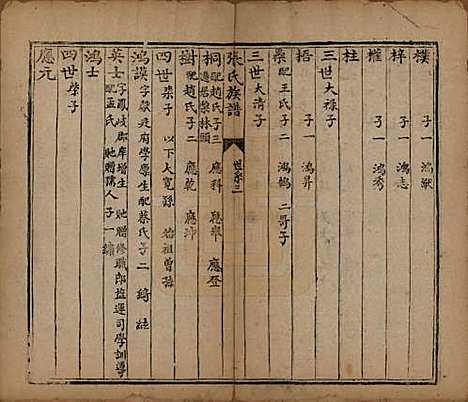 樸 子一 鴻猷
梓 子一 鴻志
權 子一 鴻秀
柱
三世大祿子
梧 子一 鴻昇
配王氏子二 鴻鶴 二哥子
三世大清子
張氏族譜 世系二
桐配趙氏子三 應科 應舉 應登 遷居柴林頭
樹配趙氏子二 應乾 應坤
四世榮子 以下大寬孫 始祖曾孫
鴻謨字獻廷府學廩生配蔡氏子二 綺 紘
英士字鳳岐郡庠增生 馳贈修職郎鹽運司學訓導 配孟氏 馳贈孺人 子一繡
鴻士
四世榮子
應元